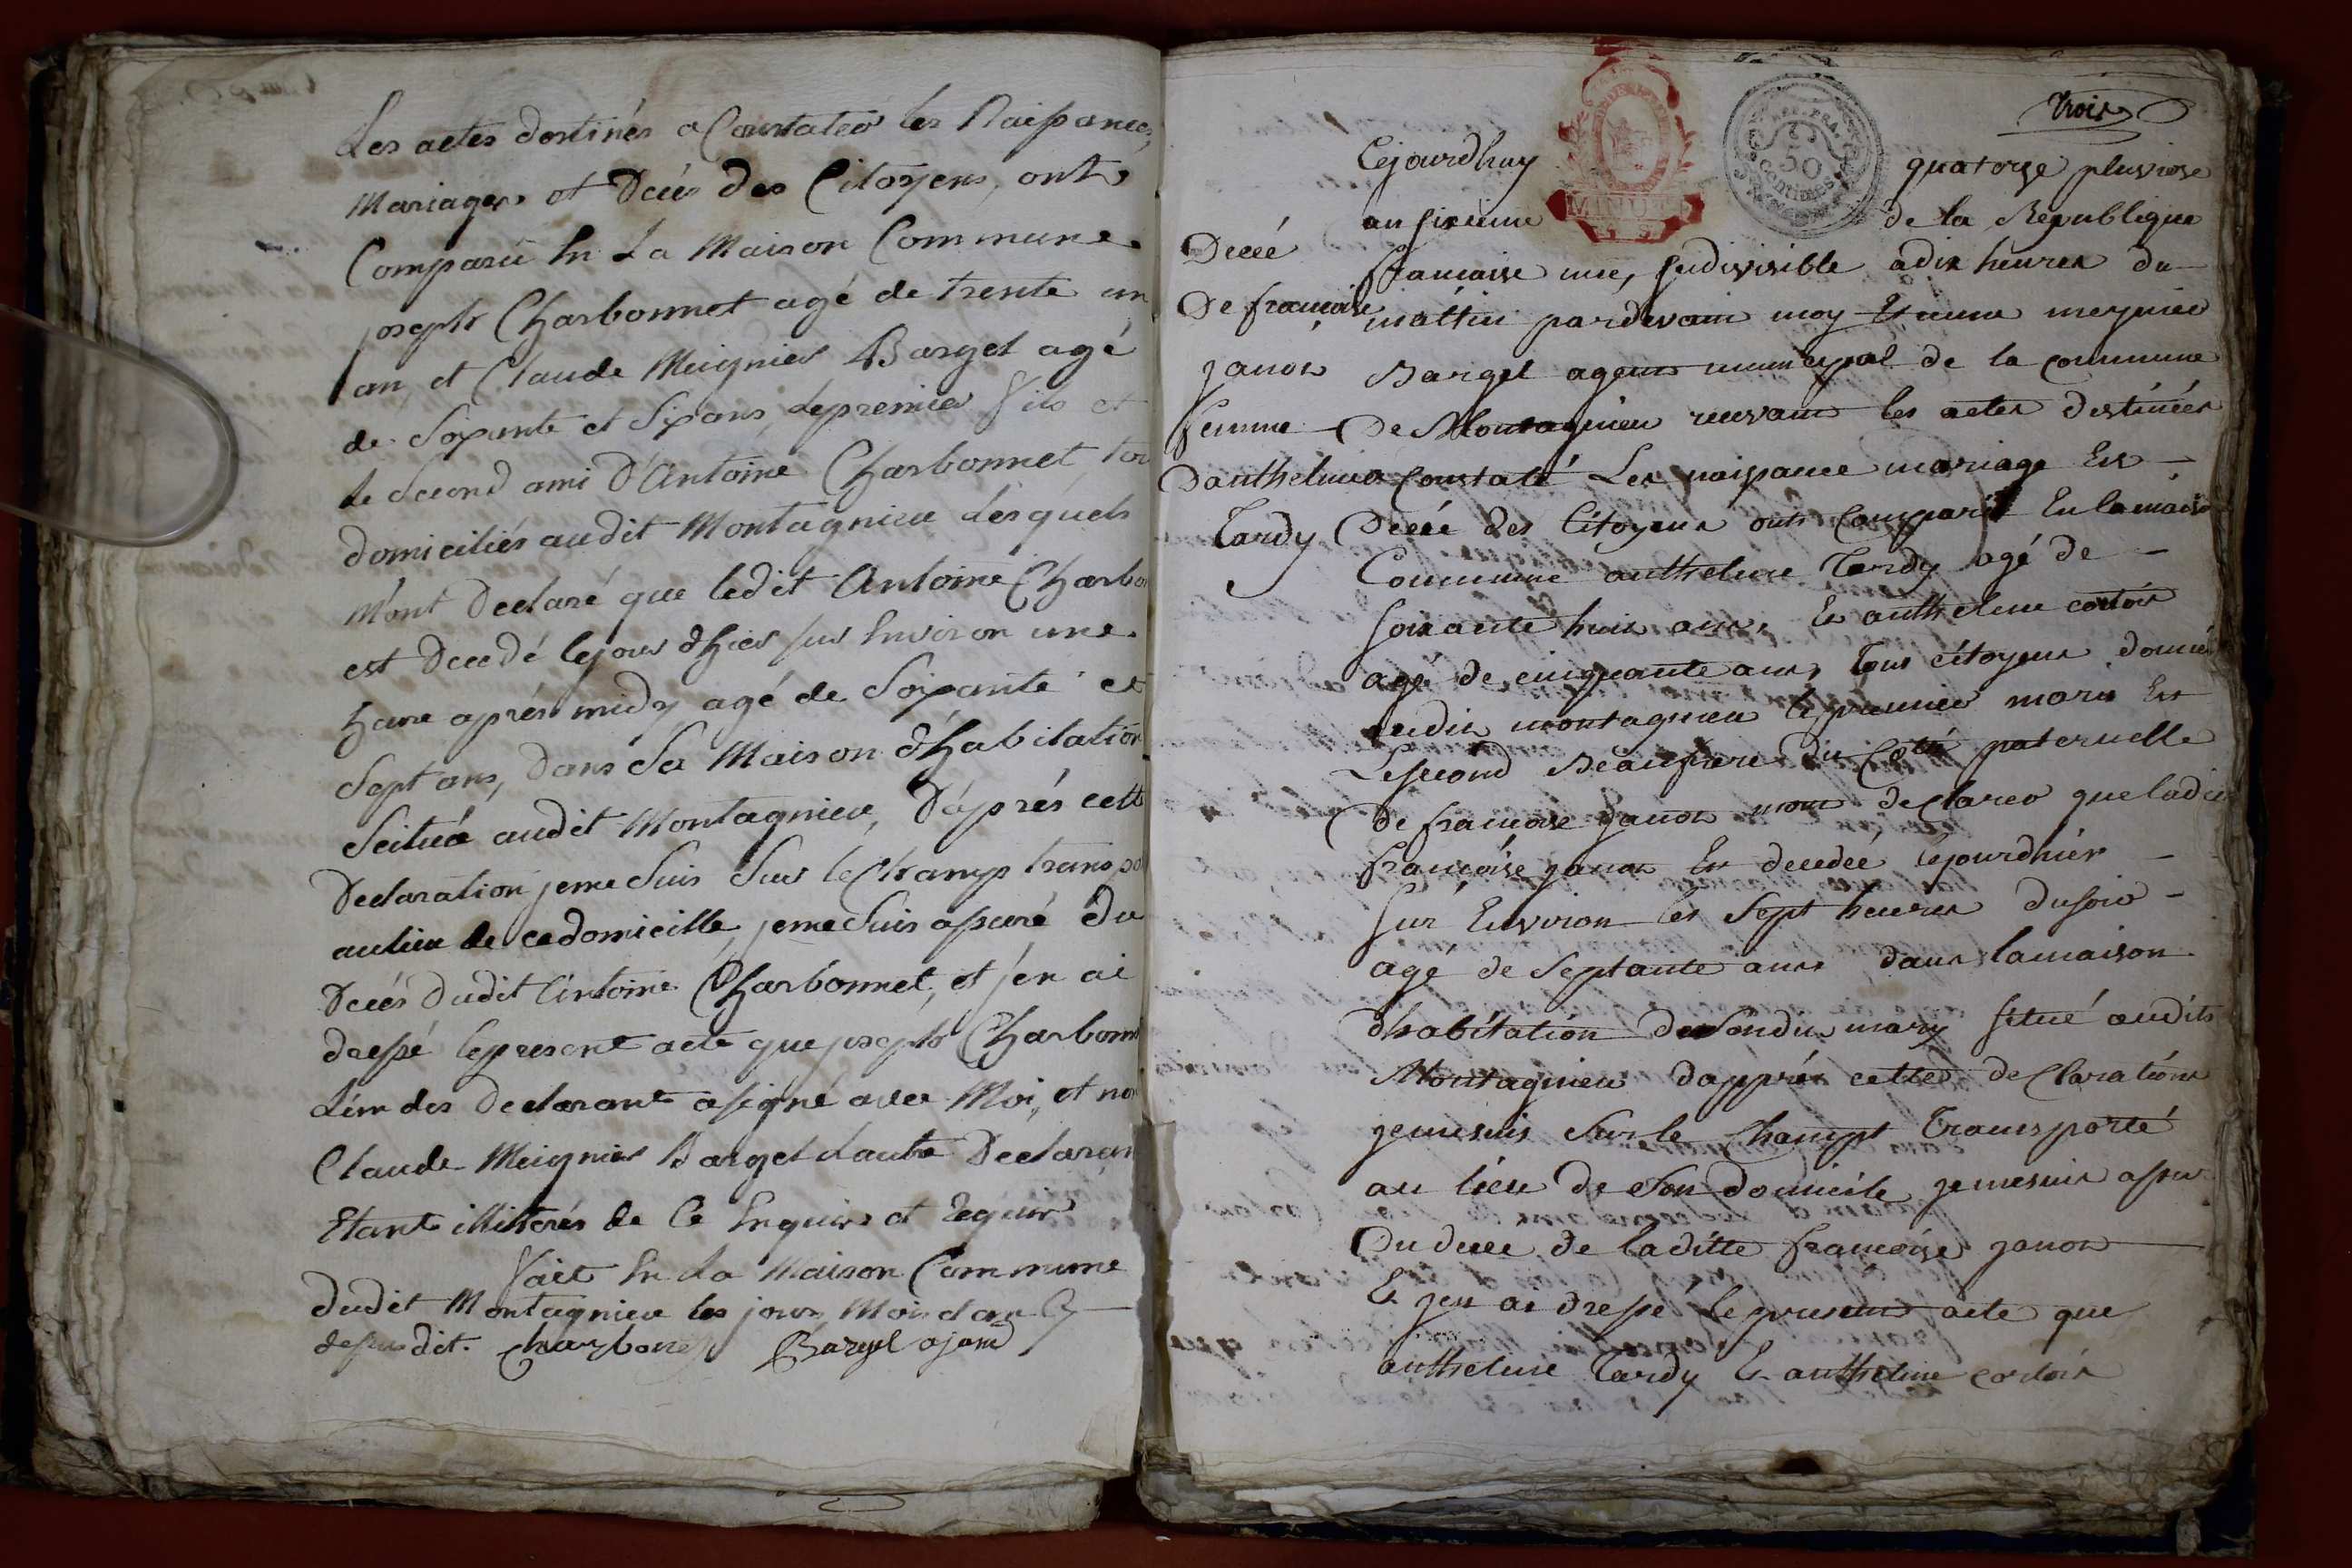 Les actes destinés a Constater les Naissances,
Mariages et Décés des Citoyens, ont
Comparü En La Maison Commune
joseph Charbonnet agé de trente un
an, et Claude Meignier Bargel agé
de Soixante et Six ans, le premier fils et
le Second ami D'Antoine Charbonnet, tou
domiciliés audit Montagnieu lesquels
M'ont Declaré que ledit Antoine Charbo
est Decedé le jour d'hier sur Environ une
heure aprés midy agé de Soixante et
Sept ans, Dans Sa Maison d'habitation
Scituée audit Montagnieu, D'après cett
Declaration je me Suis Sur le Champ transpo
au lieu de ce domicille, je me Suis assuré Du
Decés Dudit Antoine Charbonnet, et j'en ai
dressé le present acte que joseph Charbonn
L'un des Declarant a signé avec Moi, et non
Claude Meignier Bargel L'autre Declaran
Etant illiterés de Ce Enquis et Requis
Fait En La Maison Commune
dudit Montagnieu les jour, Mois et an
de sus dit. Charbonet Bargel ajant
Trois
MINUTE
REP. FRA.
50
centimes
Cejourdhuy quatorze pluviose
an sixieme de la Republique
francaise une, Indivisible a dix heures du
mattin pardevant moy meynier
Bargel agent municipal de la commune
De Montagnieu recevant les actes destinées
a Constaté Les naissance mariage Et
Décée des Citoyens onts Comparü En la maiso
Commune anthelme Tardy agé de
soixante huit ans, Et anthelme cortois
agé de cinquante ans, tous citoyens domici
audit montagnieu le premier mary Et
Le second Beaufrere Du Coté paternelle
De francoise janon mont declarer que ladit
francoise janon Et decedée le jourdhier
Sur Environ les Sept heures du soir
agé de Septante ans dans la maison
dhabitation de sondit mary situé audits
Montagnieu dapprés cette declarations
je me suis Sur le Champt Transporté
au lieu de Son domicile je me suis assu
Du decée de laditte francoise janon
Et jen ai dressé le present acte que
anthelme Tardy Et anthelme cortois
Deceé
De francoise
janon
femme
Danthelme
Tardy